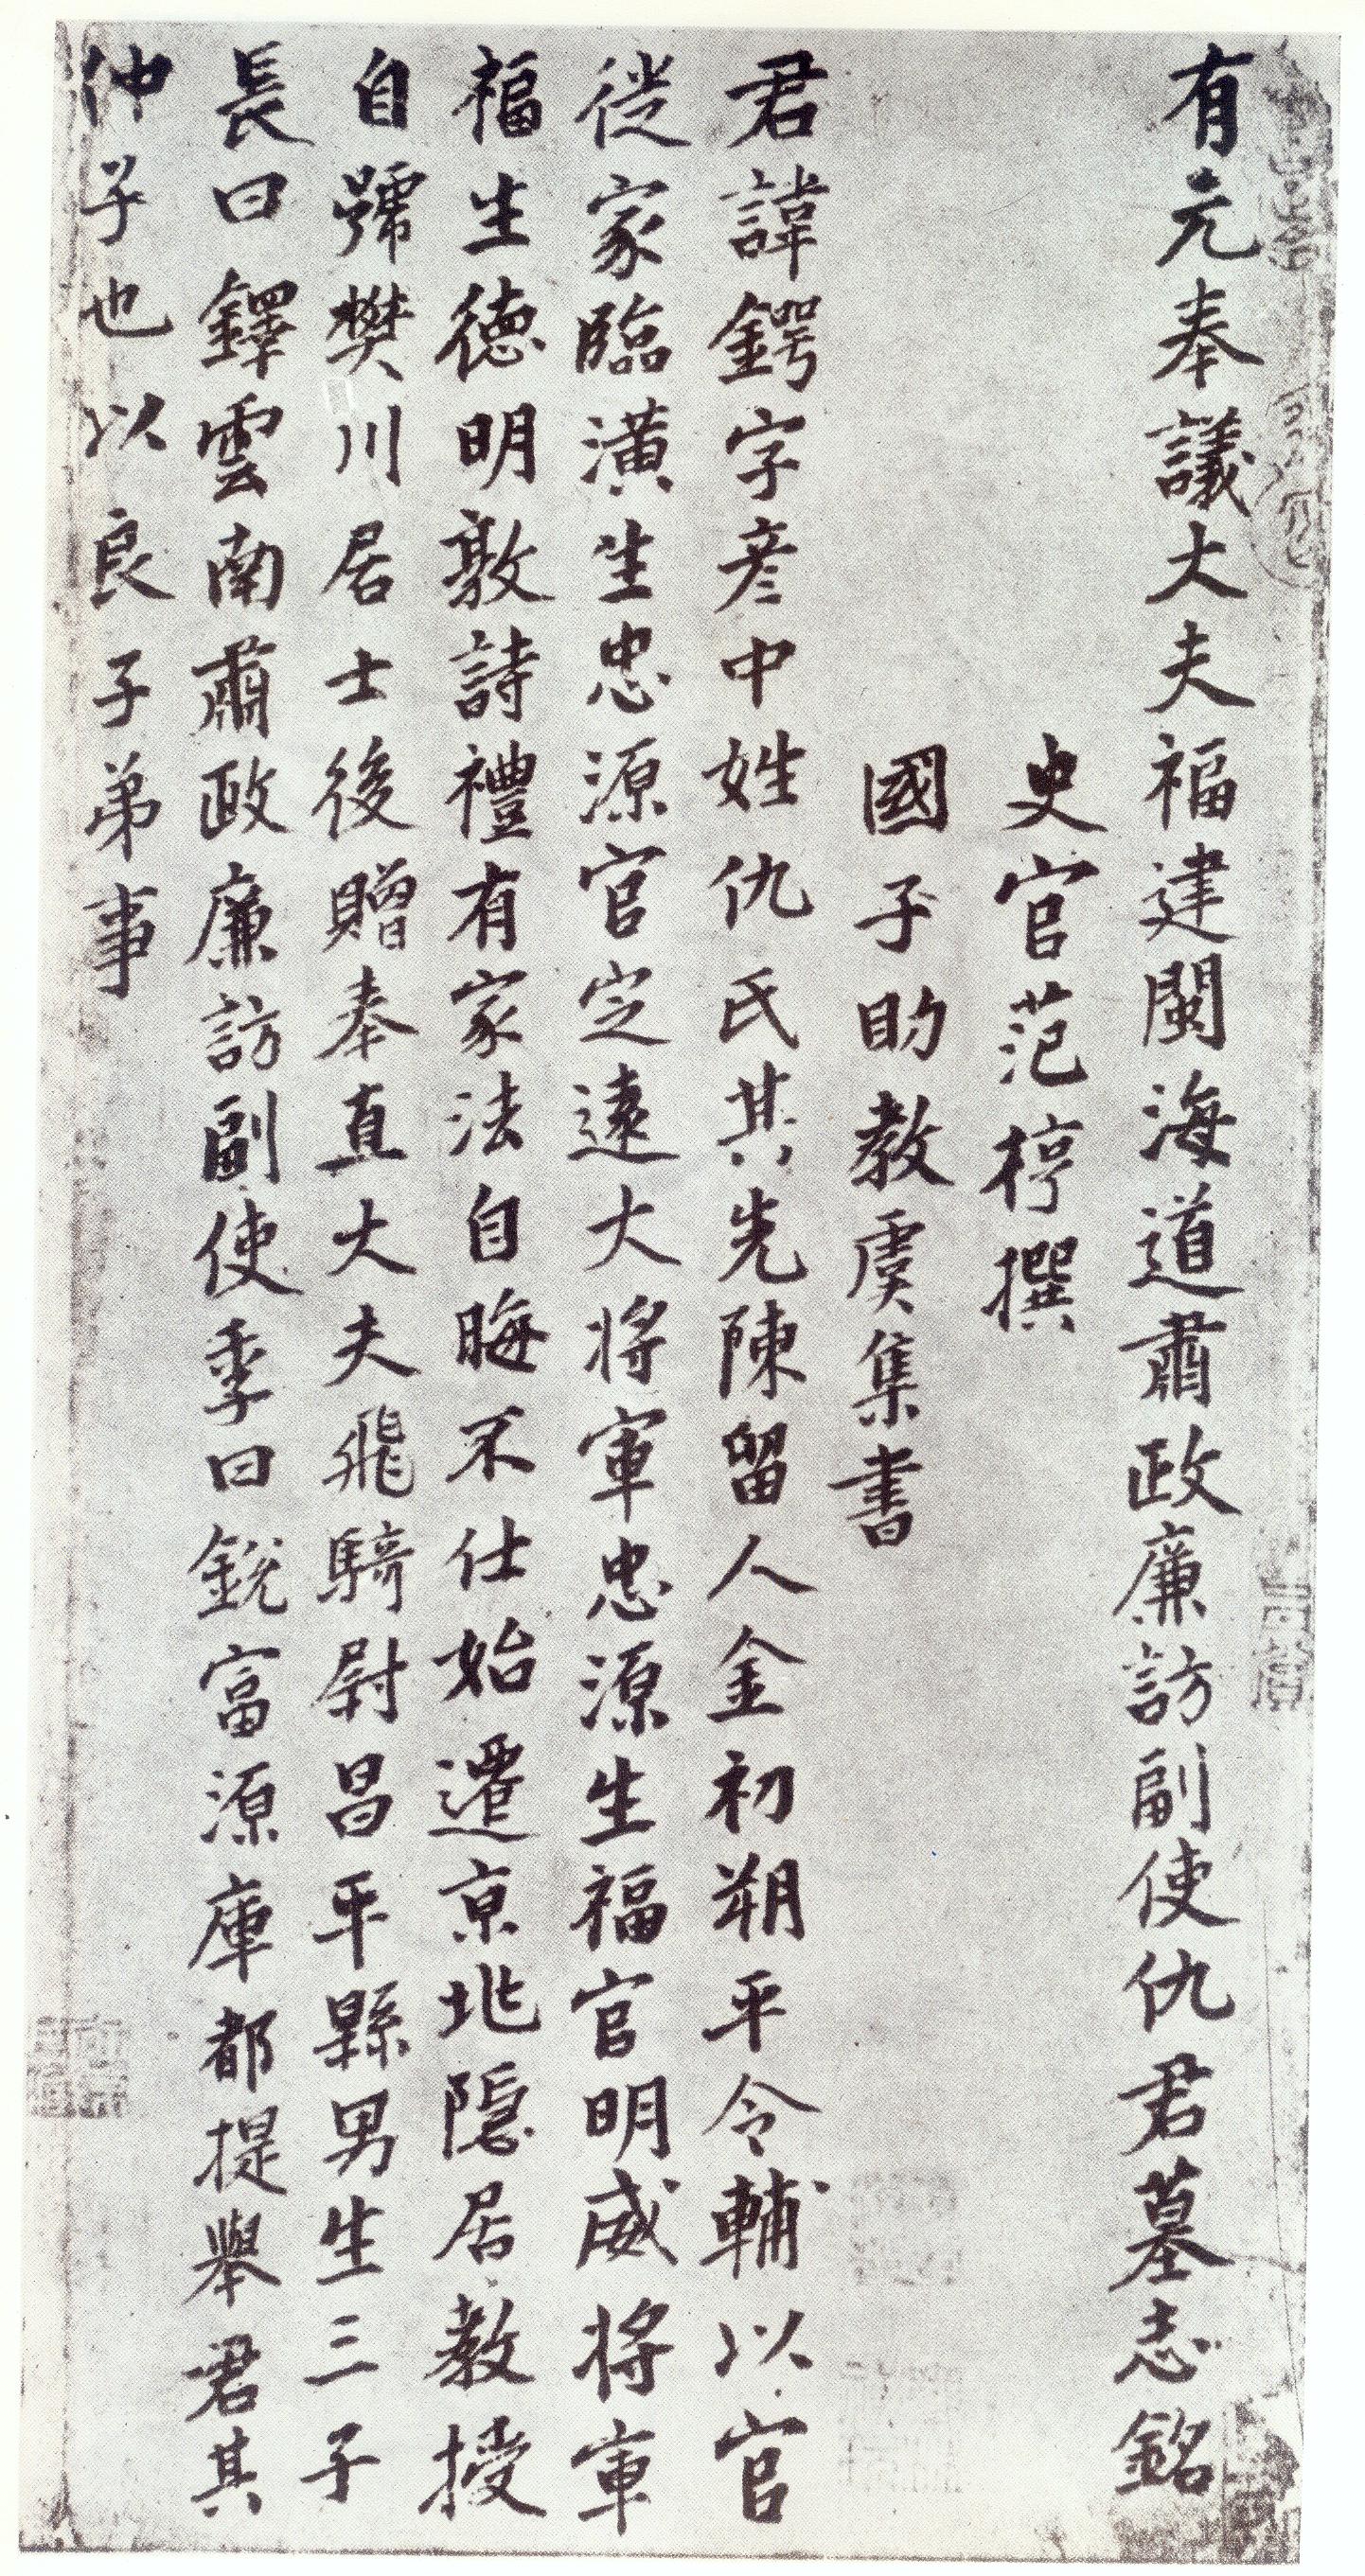 有元奉議大夫福建閩海道肅政廉訪副使仇君墓志銘
史官范梈撰
國子助教虞集書
君諱鍔字彦中姓仇氏其先陳留人金初朔平令輔以官
從家臨潢生忠源官定遠大將軍忠源生福官明威將軍
福生德明敦詩禮有家法自晦不仕始遷京兆隱居教授
自號樊川居士後贈奉直大夫飛騎尉昌平縣男生三子
長曰鐸雲南肅政廉訪副使季曰銳富源庫都提舉君其
仲子也以良子弟事